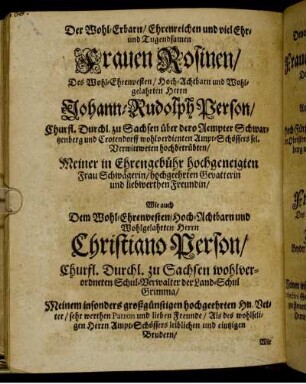 Der Wohl-Erbarn/ Ehrenreichen und viel Ehr-
und Tugendsamen
Frauen Rosinen/
Des Wohl-Ehrenvesten/ Hoch-Achtbarn und Wohl-
gelahrten Herrn
Johann-Rudolph Person/
Churfl. Durchl. zu Sachsen über dero Aempter Schwar-
tzenberg und Crotendorff wohlverdienten Ampt-Schössers sel.
Verwittweten hochbetrübten/
Meiner in Ehrengebühr hochgeneigten
Frau Schwägerin/ hochgeehrten Gevatterin
und liebwerthen Freundin/
Wie auch
Dem Wohl-Ehrenvesten/ Hoch-Achtbarn und
Wohlgelahrten Herrn
Christiano Person/
Churfl. Durchl. zu Sachsen wohlver-
ordneten Schul-Verwalter der Land-Schul
Grimma/
Meinem insonders großgünstigen hochgeehrten Hn. Vet-
ter/ sehr werthen Patron und lieben Freunde/ Als des wohlseli-
gen Herrn Ampt-Schössers leiblichen und eintzigen
Brudern/
Wie